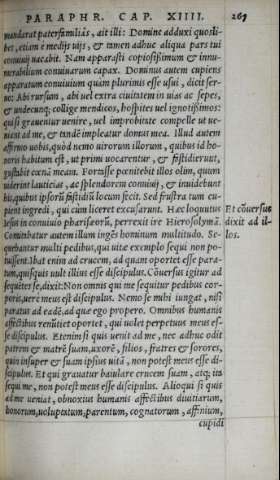 PARAPHR. CAP. XIIII. 265
mandarat paterfamiliâs, ait illi: Domine adduxi quoslibet,
etiam e medijs uijs, & tamen adhuc aliqua pars tui
conuiuij uacabit. Nam apparasti copiosissimum & innumerabilium
conuiuarum capax. Dominus autem cupiens
apparatum conuiuium quàm plurimis esse usui, dicit seruo:
Abi rursum, abi uel extra ciuitatem in uias ac sepes,
& undecunq; collige mendicos, hospites uel ignotissimos:
qui si grauentur uenire, uel improbitate compelle ut ueniant
ad me, & tandẽ impleatur domus mea. Illud autem
affirmo uobis, quòd nemo uirorum illorum, quibus id honoris
habitum est, ut primi uocarentur, & fastidierunt,
gustabit cœnã meam. Fortasse pœnitebit illos olim, quum
uiderint lauticias, ac splendorem conuiuij, & inuidebunt
his, quibus ipsorũ fastidiũ locum fecit. Sed frustra tum cupient
ingredi, qui cùm liceret excusarunt. Hæc loquutus
Iesus in conuiuio pharisæorũ, perrexit ire Hierosolymã.
Comitabatur autem illum ingẽs hominum multitudo. Sequebantur
multi pedibus, qui uitæ exemplo sequi non potuissent.
Ibat enim ad crucem, ad quam oportet esse paratum,
quisquis uult illius esse discipulus. Cõuersus igitur ad
sequẽtes se, dixit: Non omnis qui me sequitur pedibus corporis,
uerè meus est discipulus. Nemo se mihi iungat, nisi
paratus ad eadẽ, ad quæ ego propero. Omnibus humanis
affectibus renũtiet oportet, qui uolet perpetuus meus esse
discipulus. Etenim si quis uenit ad me, nec adhuc odit
patrem & matrẽ suam, uxorẽ, filios, fratres & sorores,
quin insuper & suam ipsius uitã, non potest meus esse discipulus.
Et qui grauatur baiulare crucem suam, atq; ita
sequi me, non potest meus esse discipulus. Alioqui si quis
ad me ueniat, obnoxius humanis affectibus diuitiarum,
honorum, uoluptatum, parentum, cognatorum, affinium,
cupidi
Et cõuersus
dixit ad il-
los.